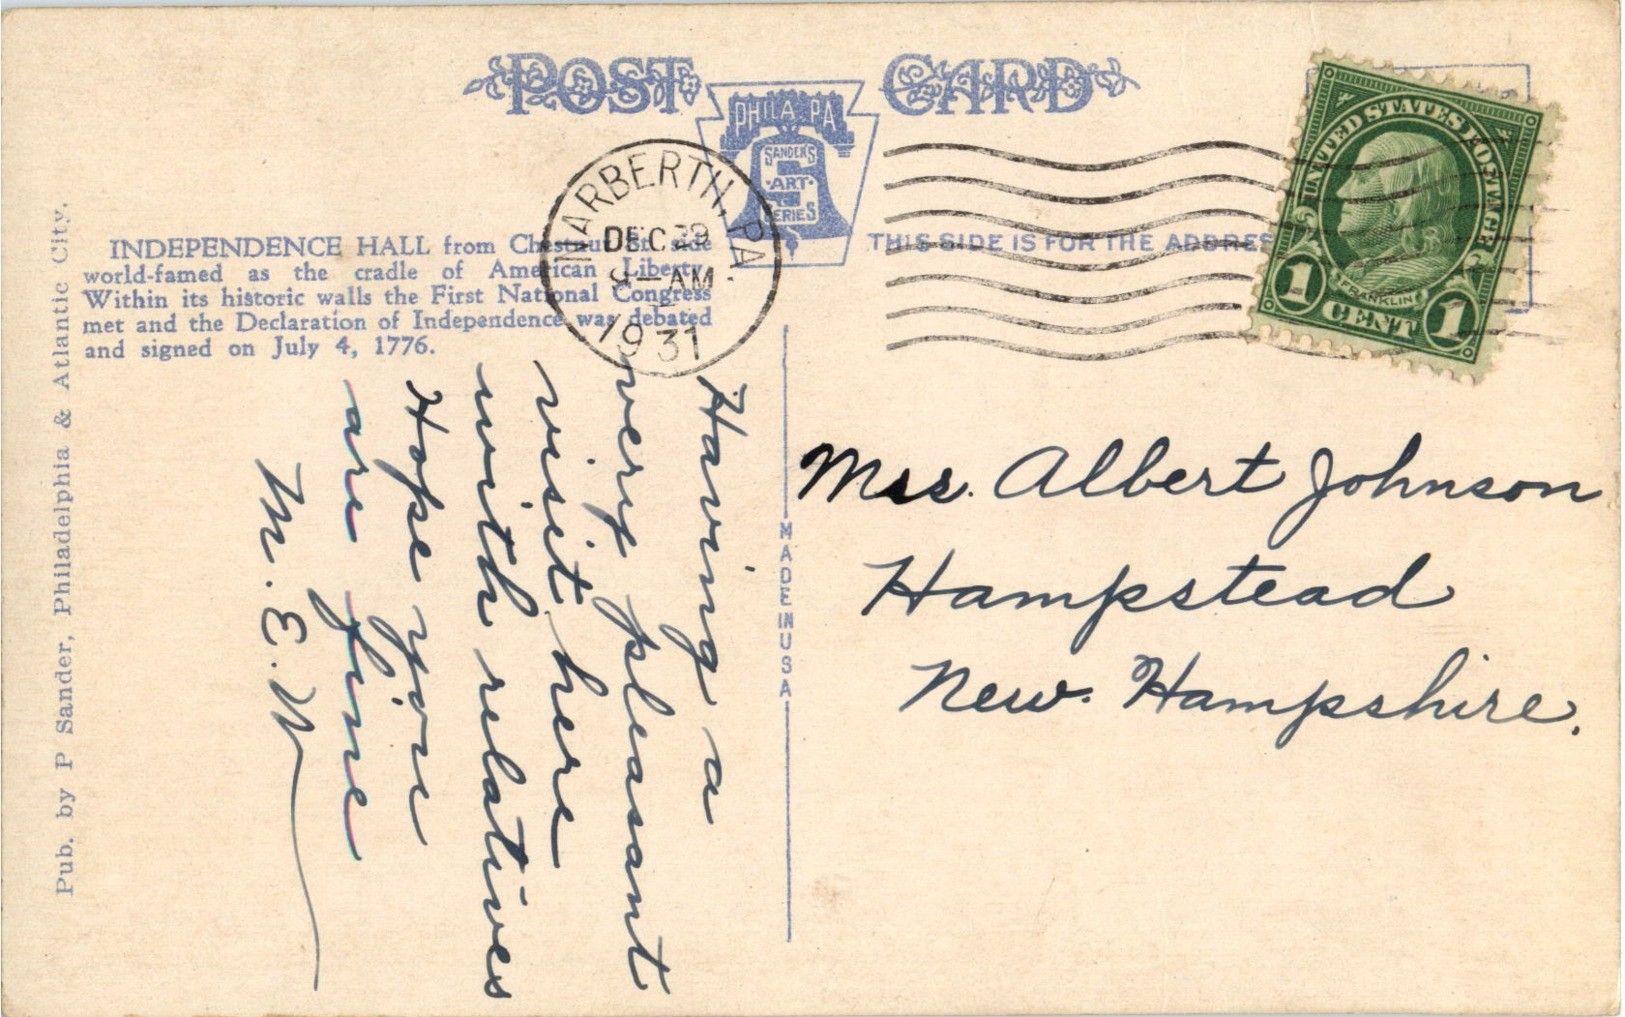 POST CARD
PHILA. PA
SANDER'S
S
ART
SERIES
NARBERTH, PA
DEC 29
9-AM
1931
THIS SIDE IS FOR THE ADDRES
UNITED STATES POSTAGE
FRANKLIN
1 CENT 1
INDEPENDENCE HALL from Chestnut St. side
world-famed as the cradle of American Liberty.
Within its historic walls the First National Congress
met and the Declaration of Independence was debated
and signed on July 4, 1776.
Pub. by P Sander, Philadelphia & Atlantic City.
Having a
very pleasant
visit here
with relatives
Hope you
are fine
M. E. W
MADE IN USA
Mrs. Albert Johnson
Hampstead
New. Hampshire.